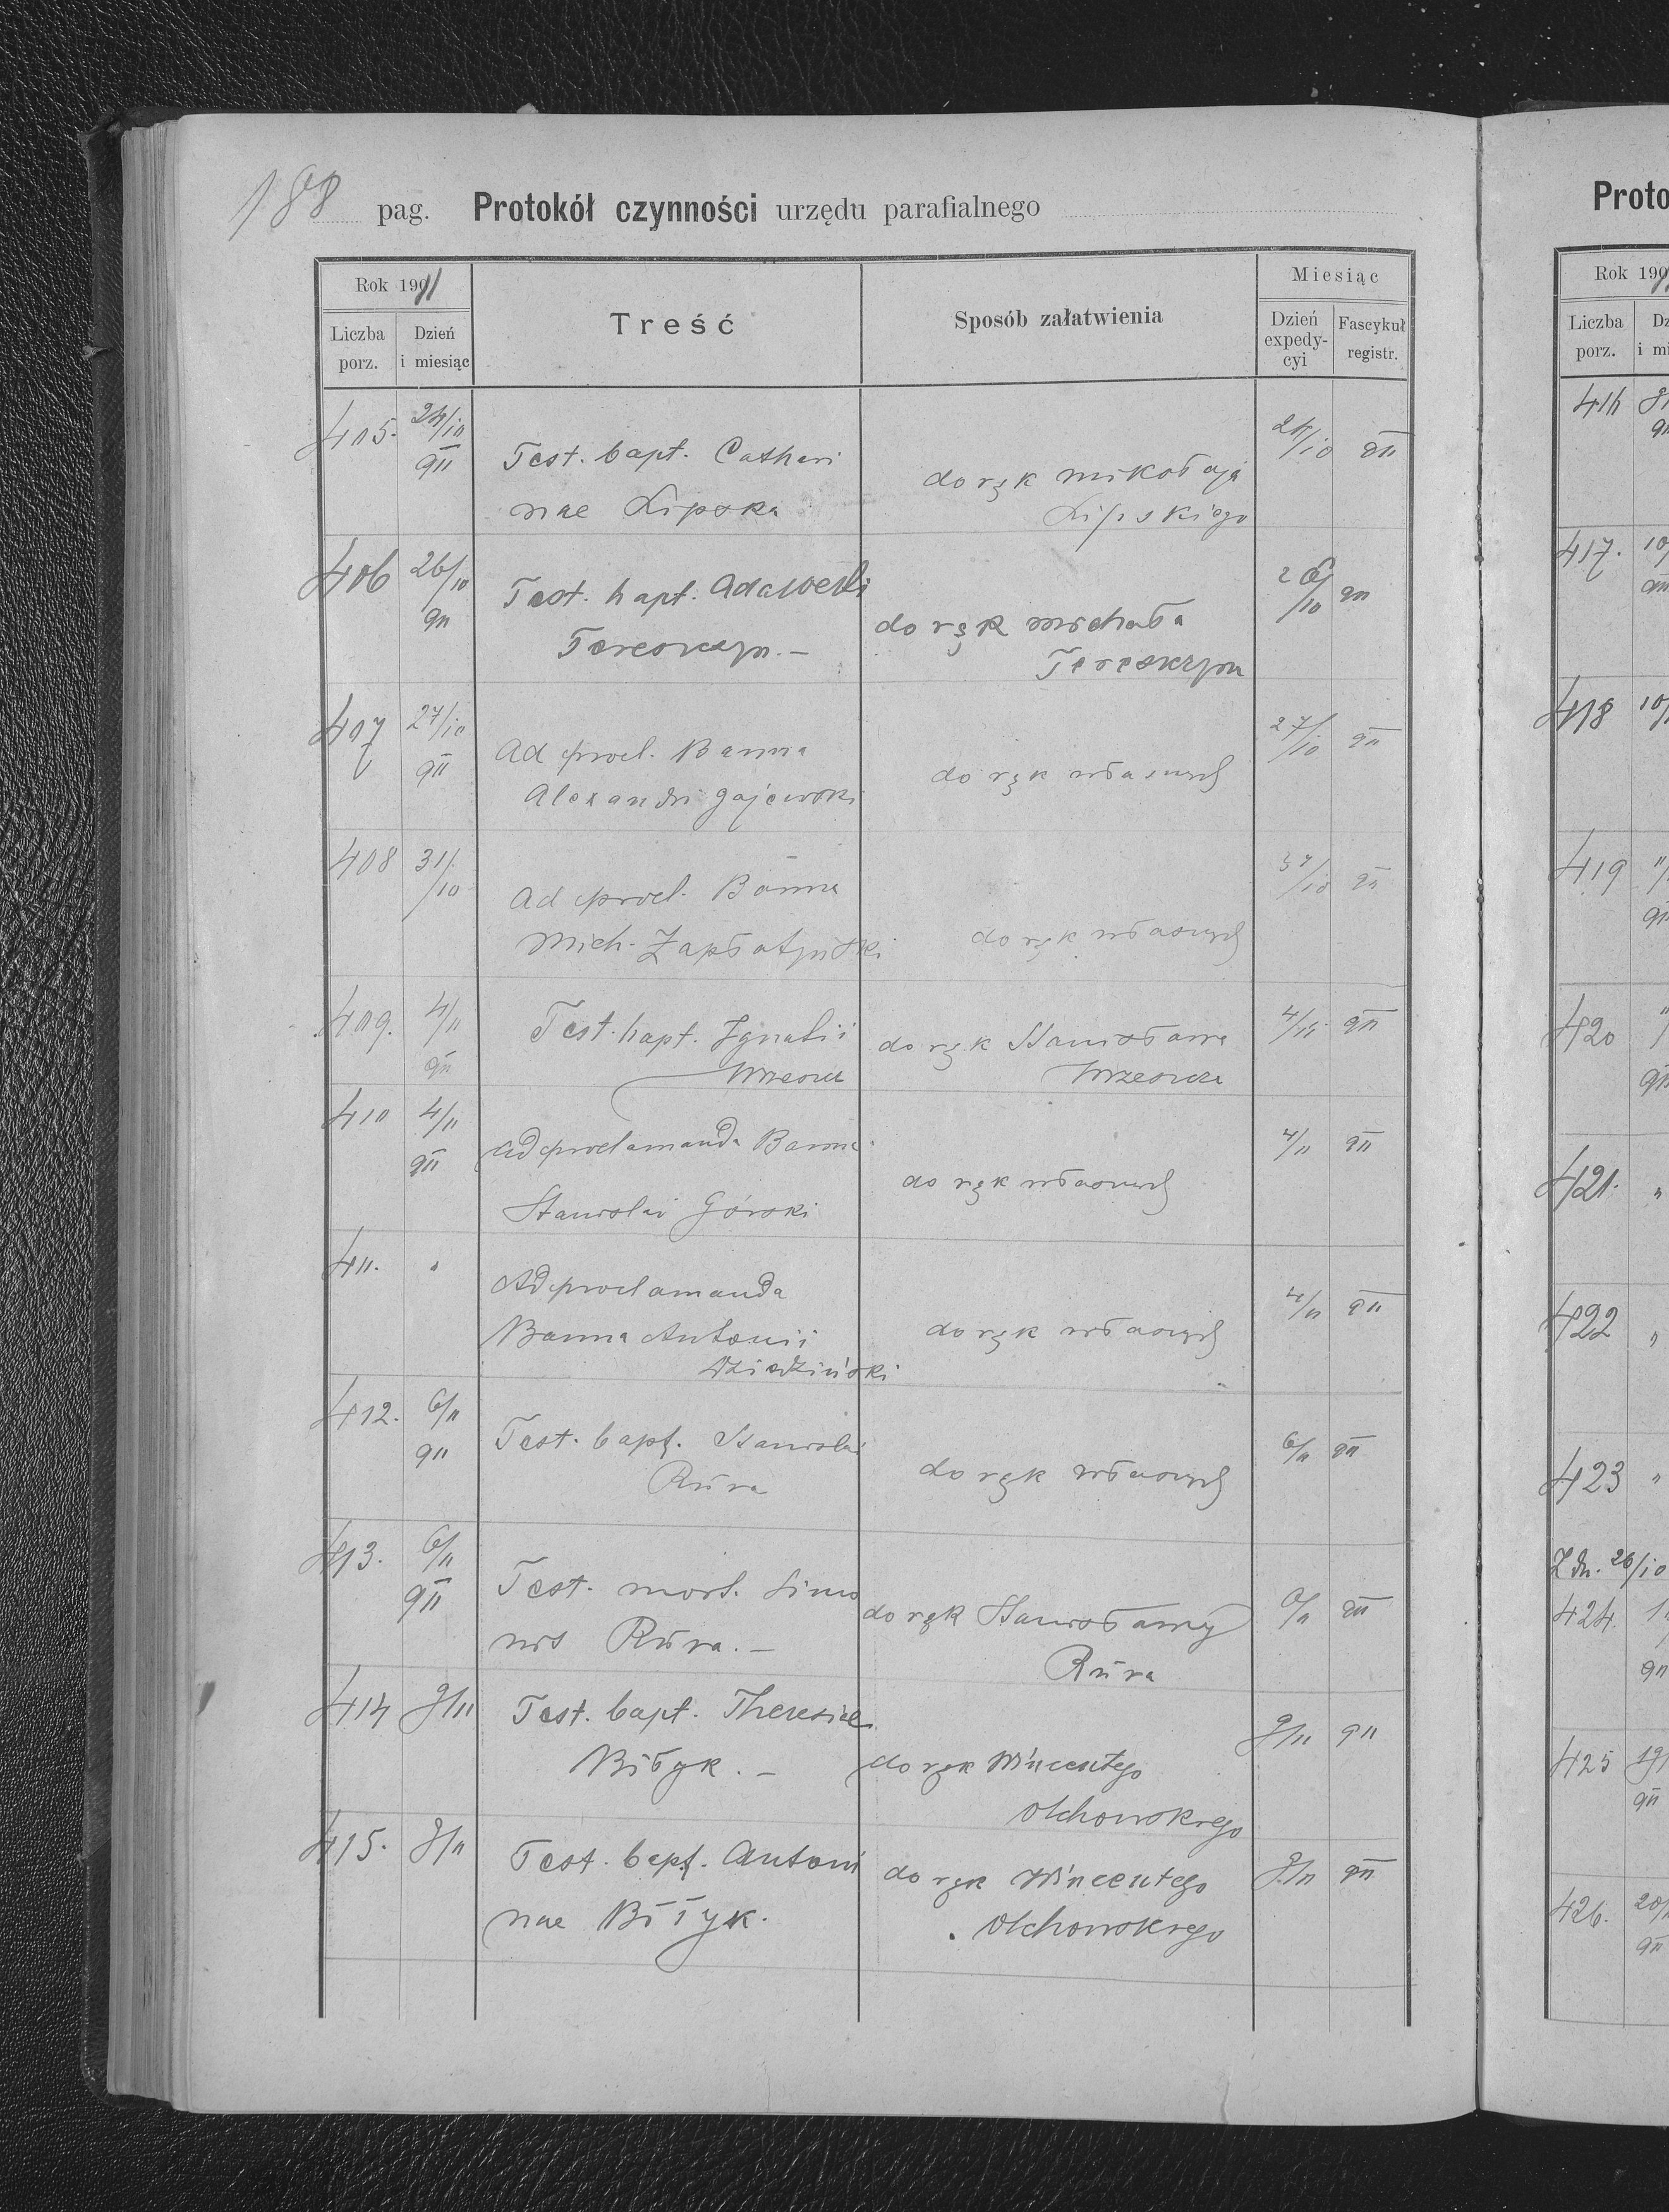 188 pag. Protokół czynności urzędu parafialnego
Rok 1911
Liczba porz.
Dzień i miesiąc
Treść
Sposób załatwienia
Miesiąc
Dzień expedycyi
Fascykuł registr.
405. 24/10 911 Test. bapt. Cathari do rąk Mikołaja 24/10 911
nae Lipska Lipskiego
406 26/10 911 Test. bapt. do rąk Michała 26/10 911
Tereszczyn. — Tereszczyna
407 27/10 911 Ad procl. Banna do rąk własnych 27/10 911
Alexandri Gajewski
408 31/10 Ad procl. Banna 31/10 911
Mich. Zapłatyński do rąk własnych
409. 4/11 911 Test. bapt. Ignatii do rąk Stanisława 4/11 911
410 4/11 911 Ad proclamanda Banna do rąk własnych 4/11 911
Stanislai Górski
411. " Ad proclamanda 4/11 911
Banna Antonii do rąk własnych
Dziedziński
412. 6/11 911 Test. bapt. Stanislai do rąk własnych 6/11 911
Rura
413. 6/11 911 Test. mort. Simo do rąk Stanisławy 6/11 911
nis Rura. — Rura
414 9/11 Test. bapt. Theresiae 9/11 911
Biłyk. — do rąk Wincentego
Olchowskiego
415. 9/11 Test. bapt. Antoni do rąk Wincentego 9/11 911
nae Biłyk. Olchowskiego
Proto
Rok 190
Liczba porz.
Dz
i mi
416
417. 10/
418 10/
419 "/
420 "/
421. "
422 "
423 "
Z dn. 26/10
424.
425 19/
911
426. 20/
911